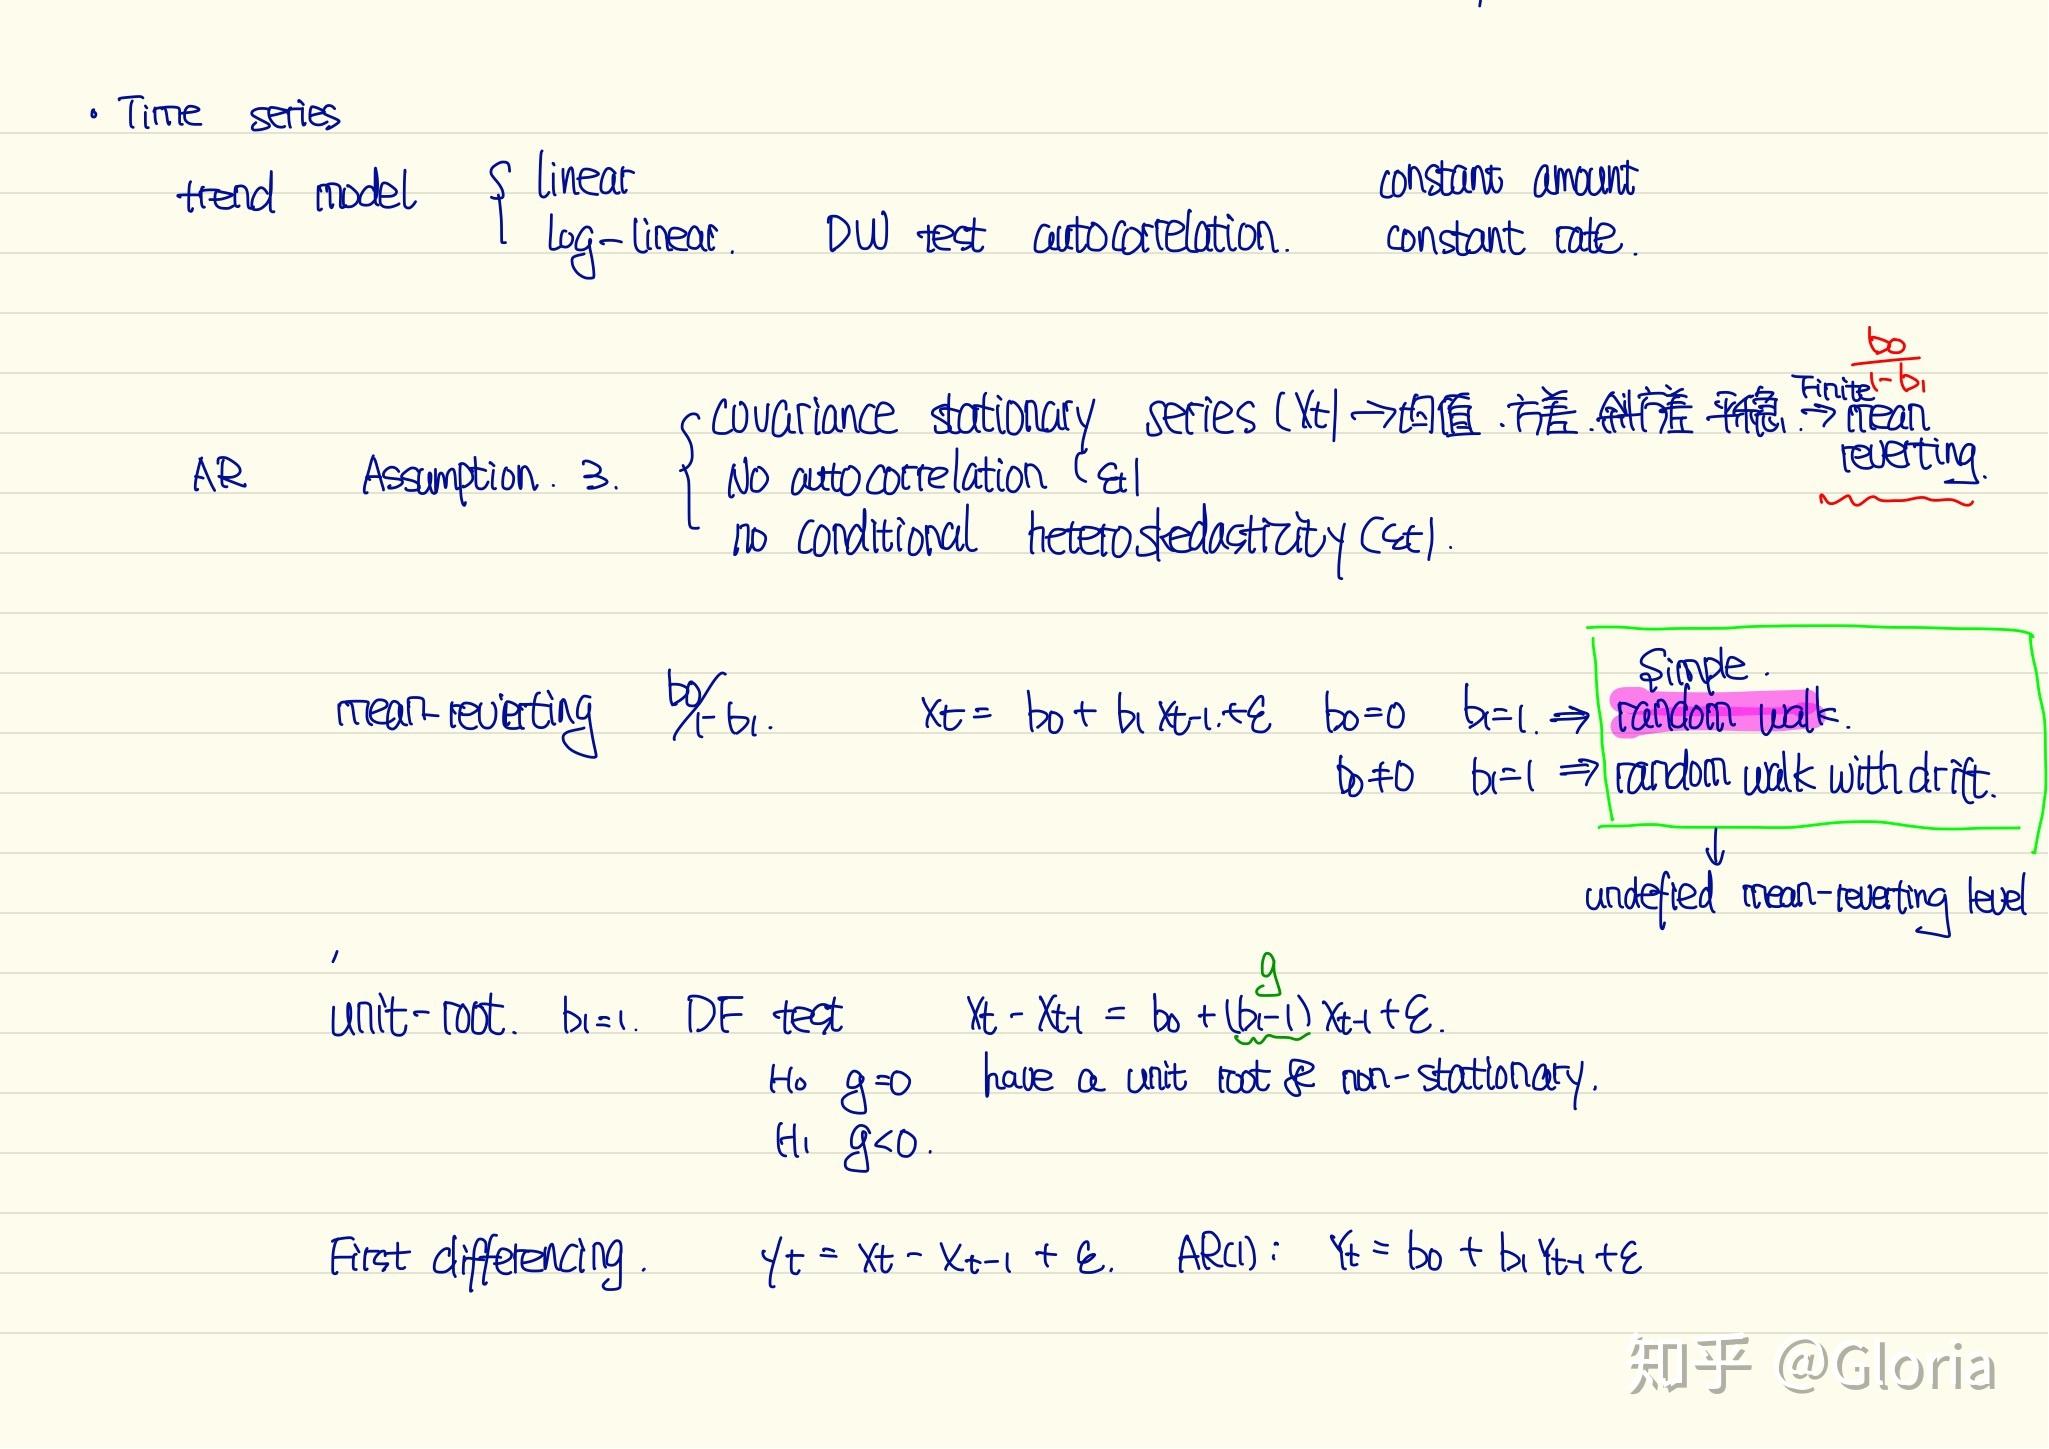 · Time series
trend model { linear constant amount
log-linear. DW test autocorrelation. constant rate.
b0/1-b1
{ covariance stationary series (Xt) → 均值.方差.斜方差 平稳. Finite → mean
AR Assumption. 3. No autocorrelation (εt) reverting.
no conditional heteroskedasticity (εt).
Simple.
mean-reverting b0/1-b1. Xt = b0 + b1 Xt-1.+ε b0=0 b1=1. ⇒ random walk.
b0≠0 b1=1 ⇒ random walk with drift.
↓
undefied mean-reverting level
g
unit-root. b1=1. DF test Xt - Xt-1 = b0 + (b1-1) Xt-1 + ε.
H0 g=0 have a unit root & non-stationary.
H1 g<0.
First differencing. yt = xt - xt-1 + ε. AR(1): Yt = b0 + b1 Yt-1 + ε
知乎 @Gloria